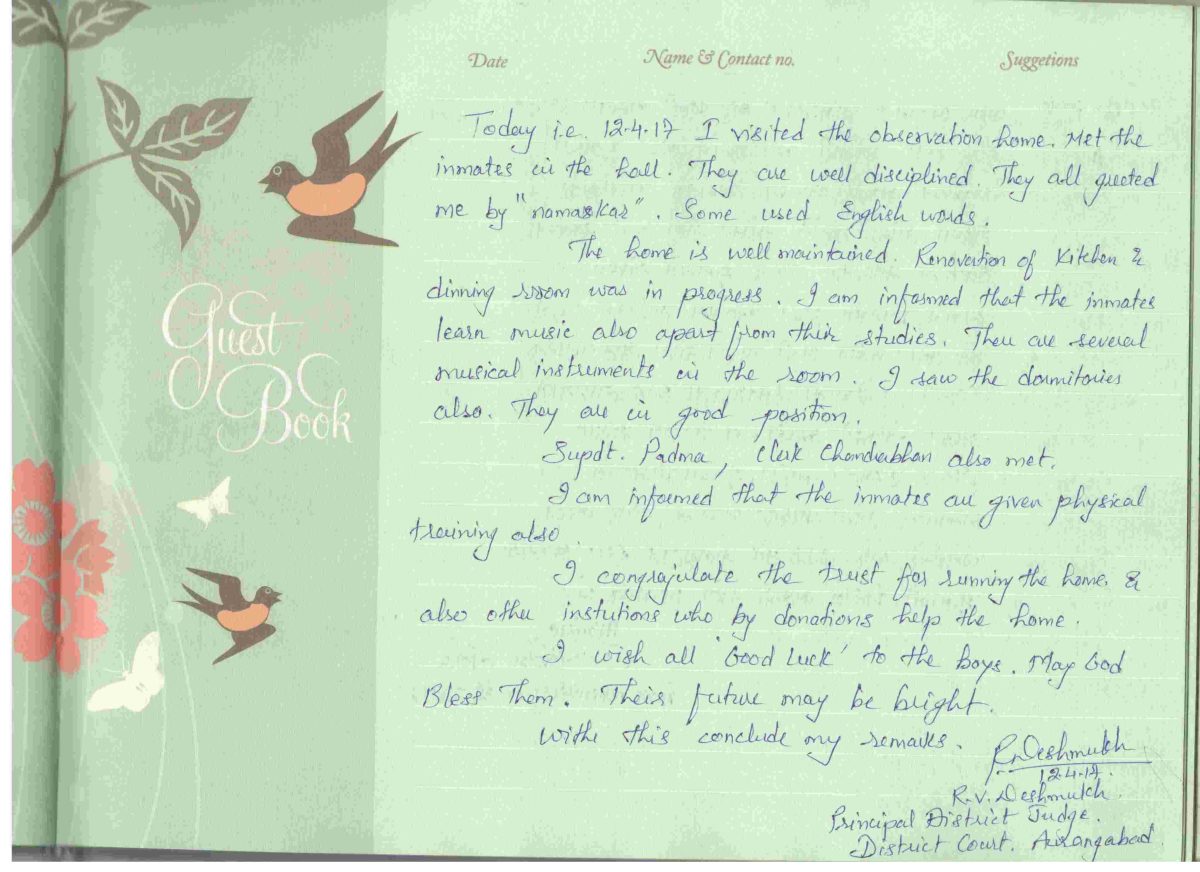 Guest
Book
Date Name & Contact no. Suggetions
Today i.e. 12.4.17 I visited the observation home. Met the
inmates in the hall. They are well disciplined. They all greeted
me by "namaskar". Some used English words.
The home is well maintained. Renovation of Kitchen &
dinning room was in progress. I am informed that the inmates
learn music also apart from their studies. There are several
musical instruments in the room. I saw the dormitories
also. They are in good position.
Supdt. Padma, Clerk Chandrabhan also met.
I am informed that the inmates are given physical
training also.
I congrajulate the trust for running the home. &
also other instutions who by donations help the home.
I wish all 'Good Luck' to the boys. May God
Bless Them. Their future may be bright.
Withe this conclude my remarks. R.V.Deshmukh
12.4.17.
R.V. Deshmukh.
Principal District Judge.
District Court. Aurangabad